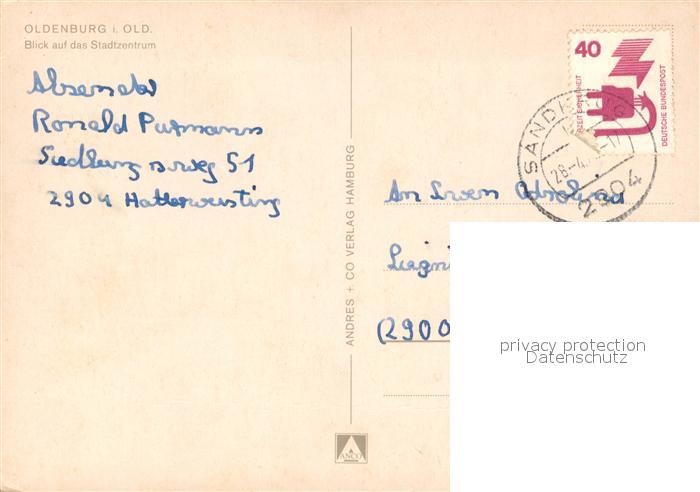 OLDENBURG i. OLD.
Blick auf das Stadtzentrum
Absender
Ronald Putzmann
Siedlungsweg 51
2904 Hatterwüsting
ANDRES + CO VERLAG HAMBURG
ANCO
40
JEDERZEIT SICHERHEIT
DEUTSCHE BUNDESPOST
SANDK
28.-4.
2904
An
(2900
privacy protection
Datenschutz